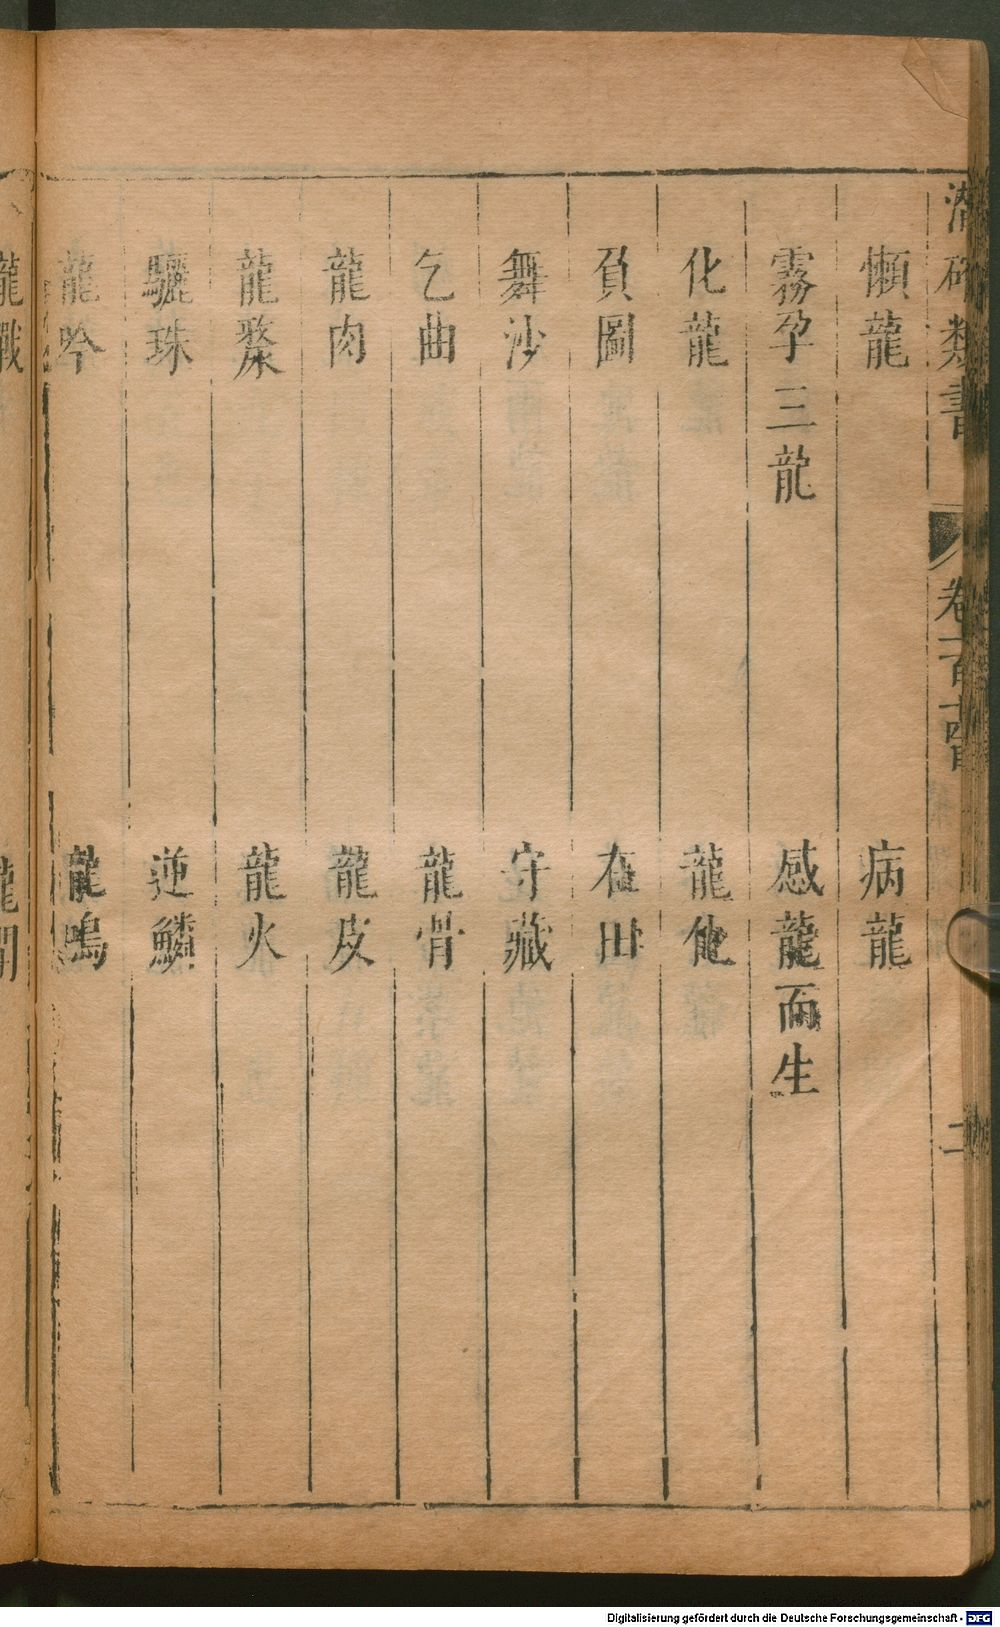 潛確類書 卷一百 二
懶龍 病龍
霧孕三龍 感龍而生
化龍 龍化
負圖 在田
舞沙 守藏
乞曲 龍骨
龍肉 龍皮
龍漦 龍火
驪珠 逆鱗
龍吟 龍鳴
龍戰
Digitalisierung gefördert durch die Deutsche Forschungsgemeinschaft - DFG